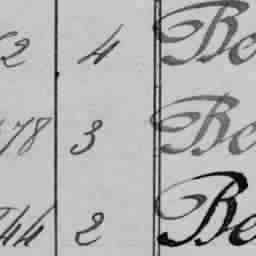 2 4 Be
78 3 Be
44 2 Be